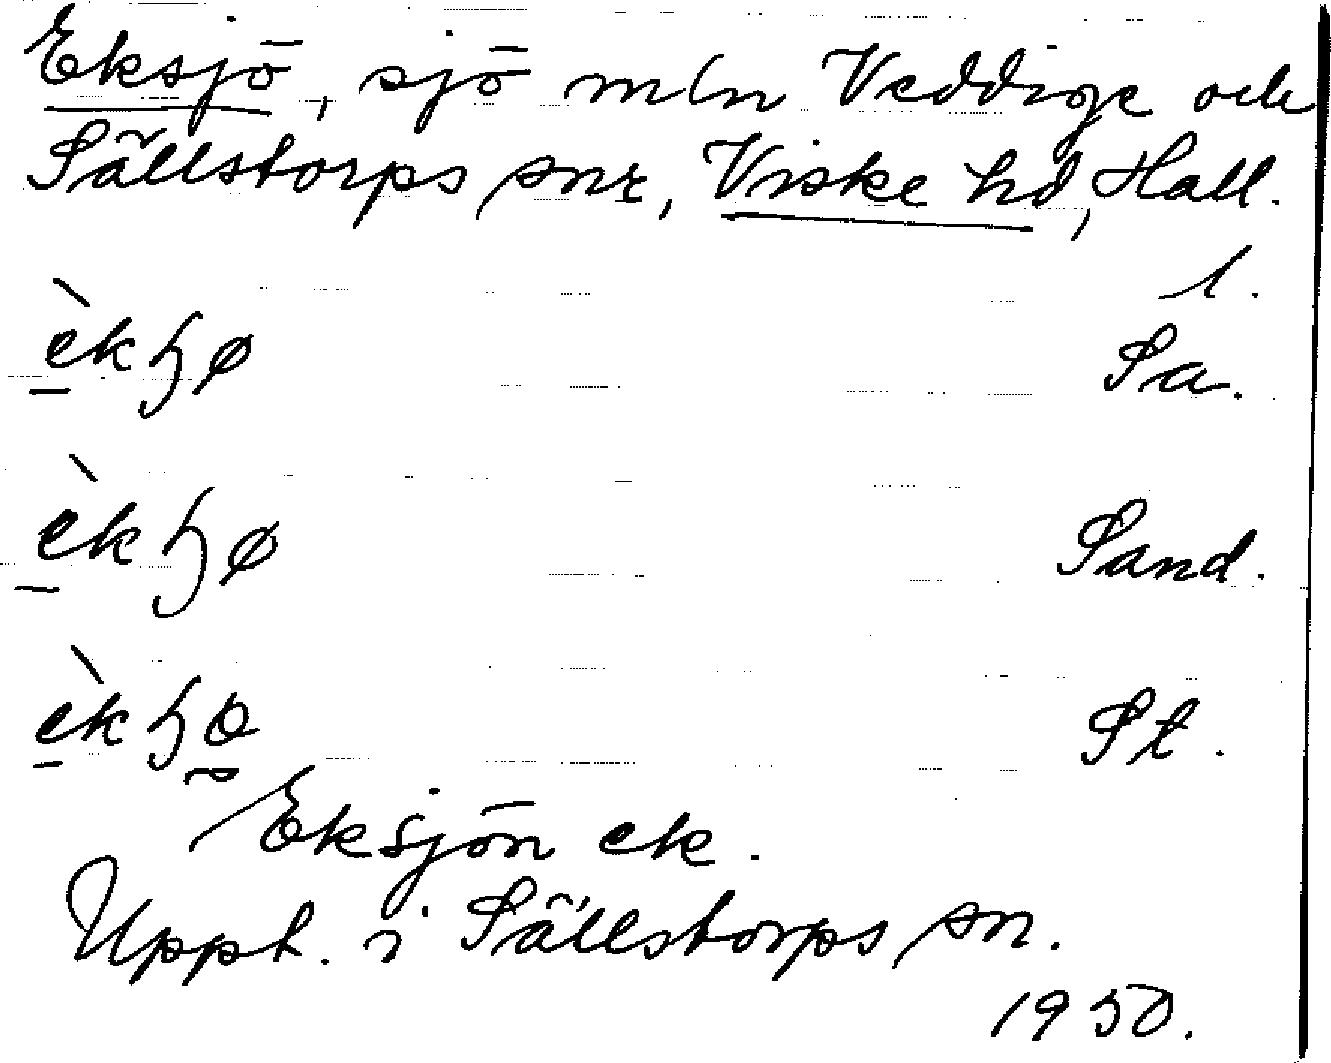 Eksjö, sjö mln Veddige och
Sällstorps snr, Viske hd, Hall.
l.
èkɧø Sa.
èkɧø Sand.
èkɧɵ St.
Eksjön ek.
Uppt. i Sällstorps sn.
1950.